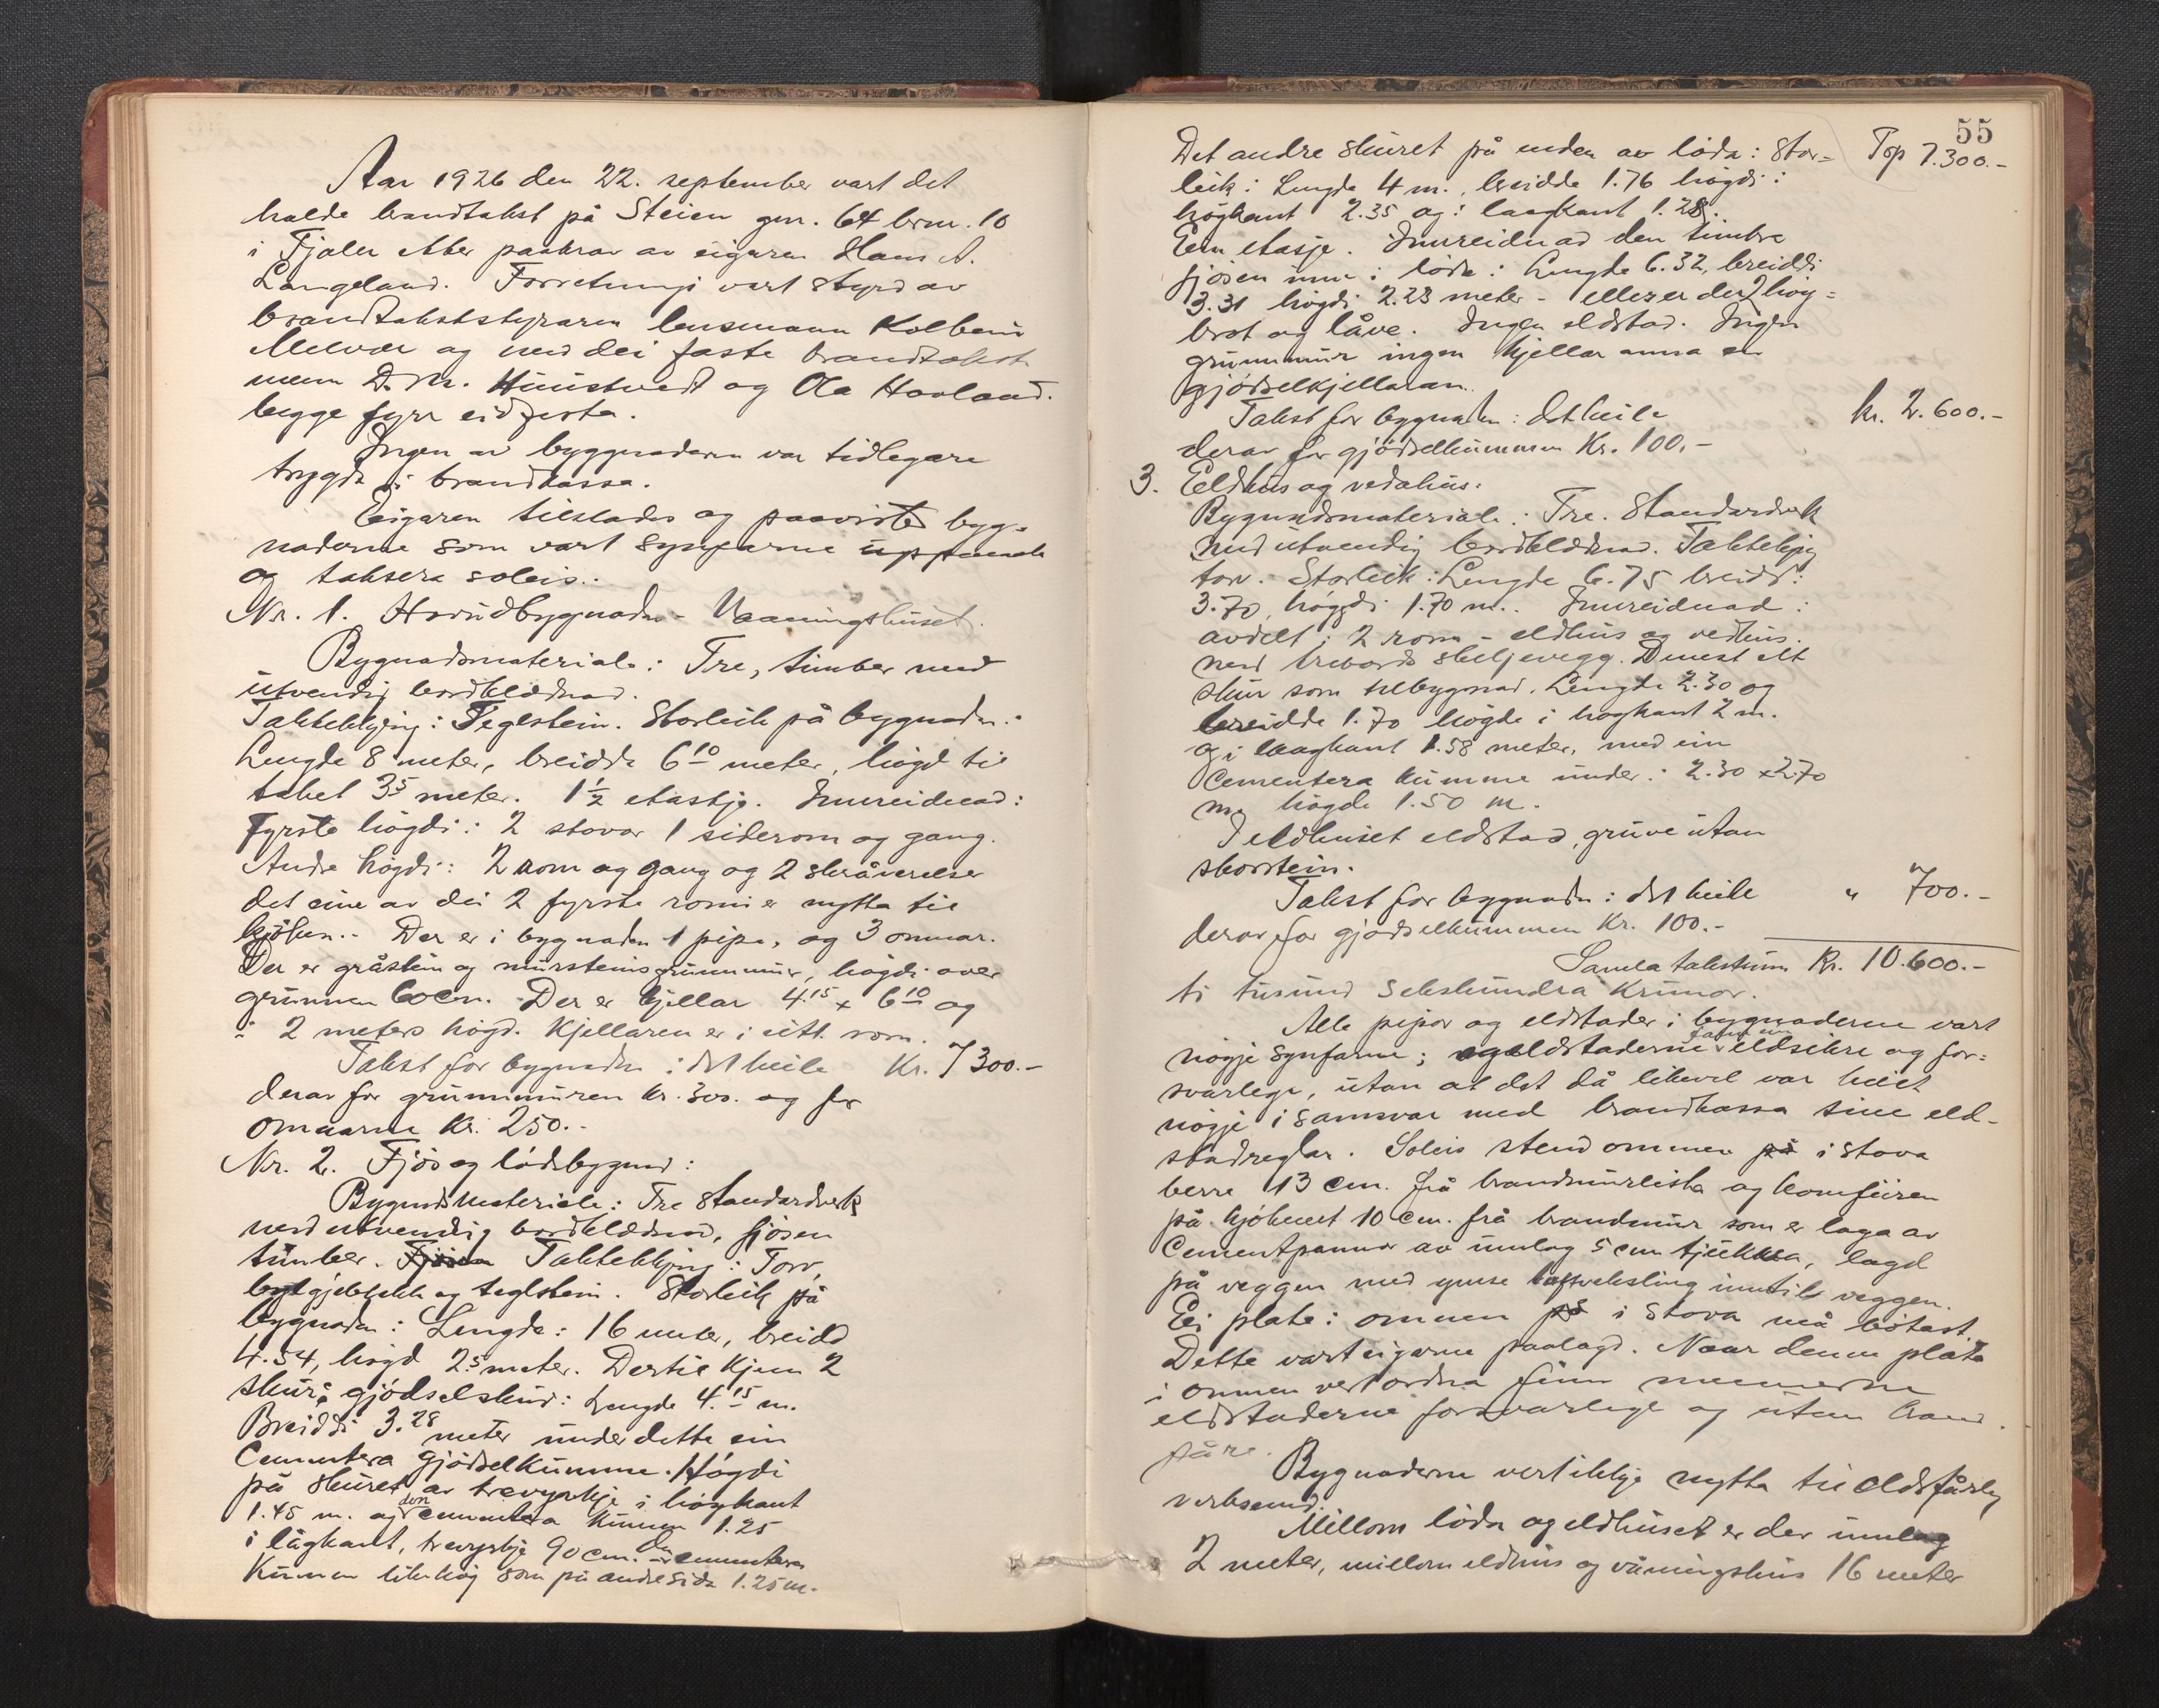 Aar 1926 den 22. september vart det
halde brandtakst på Steien gnr. 64 brnr. 10
i Fjaler etter paakrav av eigaren Hans A.
Langeland. Forretningi vart styrd av
brandtakststyraren lensmann Kolbein
Melvær og med dei faste brandtakst
menn D. M. Hunstvedt og Ola Hovland.
begge fyrr eidfesta.
Ingen av byggnadern var tidlegare
trygda i brandkassa.
Eigaren tilstades og paaviste byg-
naderne som vart synfarne uppmaalt
og taksera soleis:
Nr. 1. Hovudbygnaden - Vaaningshuset.
Bygnadsmateriale: Tre, timber med
utvendig bordklædnad.
Taktekkjing: Teglstein. Storleik på bygnaden:
Lengde 8 meter, breidde 6 10 meter, högd til
taket 3 5 meter. 1 1/2 etastje. Innreidnad:
Fyrste högdi: 2 stovor 1 siderom og gang.
Andre högdi: 2 rom og gang og 2 skråverelse
det eine av dei 2 fyrste romi er nytta til
kjöken. Der er i bygnaden 1 pipe, og 3 omnar.
Der er gråstein og mursteinsgrunnmur, högdi over
grunnen 60 cm. Der er kjellar 4.15 x 6 10 og
i 2 meters högd. Kjellaren er i eitt rom.
Takst for bygnaden i det heile Kr. 7300.-
derav for grunnmuren kr. 300. og for
omnarne Kr. 250.-
Nr. 2. Fjös og lödebygnad:
Bygnadsmateriale: Tre standardverk
med utvendig bordklædnad, fjösen
timber. Fjösen Taktekkjing: Torv,
og teglstein. Storleik på
bygnaden: Lengde: 16 meter, breidd
4.54, högd 2.5 meter. Dertil kjem 2
skur: gjödselskur: Lengde 4.15 m.
Breiddi 3.28 meter under dette ein
Cementera gjödselkumme. Högdi
på skuret av trevyrkje i högkant
1.45 m. og den cementera kummen 1.25
i lågkant, trevyrkje 90 cm. den cementera
Kummen likehög som på andre sida 1.25 m.
55
Det andre skuret på enden av löda: Stor- Tsp 7.300.-
leik: Lengde 4 m., breidde 1.76 högdi:
högkant 2.35 og i laagkant 1.28.
Ein etasje. Innreidnad den timbra
fjösen inn i löda: Lengde 6.32, breiddi
3.31 högdi 2.23 meter - elles er der 2 höy-
brot og låve. Ingen eldstad. Ingen
grunnmur ingen kjellar anna en
gjödselkjellaren.
Takst for bygnaden i det heile kr. 2.600.-
derav for gjödselkummen Kr. 100.-
3. Eeldhus og vedahus:
Bygnadsmateriale: Tre. Standardverk
med utvendig bordklædnad. Taktekkjing
torv. Storleik: Lengde 6.75 breidd:
3.70, högdi 1.70 m. Innreidnad:
avdelt i 2 rom - eldhus og vedhus.
med bordskiljevegg. Dinest eit
skur som tilbygnad. Lengde 2.30 og
breidde 1.70 högde i högkant 2 m.
og i laagkant 1.58 meter, med ein
cementera kumme under: 2.30 x 2.70
m. högde 1.50 m.
I eldhuset eldstad, gruve utan
skorstein.
Takst for bygnaden i det heile " 700.-
derav for gjödselkummen Kr. 100.-
Samla takstsum Kr. 10.600.-
ti tusund sekshundra krunor.
Alle pipor og eldstader i bygnaderne vart
nögje synfarne; og eldstaderne fann ein eldsikre og for-
svarlege, utan at det då likevel var heilt
nögje i samsvar med brandkassa sine eld-
stadreglar. Soleis stend omnen på i stova
berre 13 cm. frå brandmurleista og komfüren
på kjökenet 10 cm. frå brandmur som er laga av
Cementpannor av innlag 5 cm tjukkna, lagd
på veggen med luftveksling inntil veggen.
Ei plate i omnen på i stova må bötast.
Dette vart eigarne paalagd. Naar denne plata
i omnen vert ordna finn mennerne
eldstaderne forsvarlege og utan brand
fåre.
Bygnaderne vert ikkje nytta til eldsfårleg
verksemd.
Millom löda og eldhuset er der innlag
2 meter, millom eldhus og våningshus 16 meter